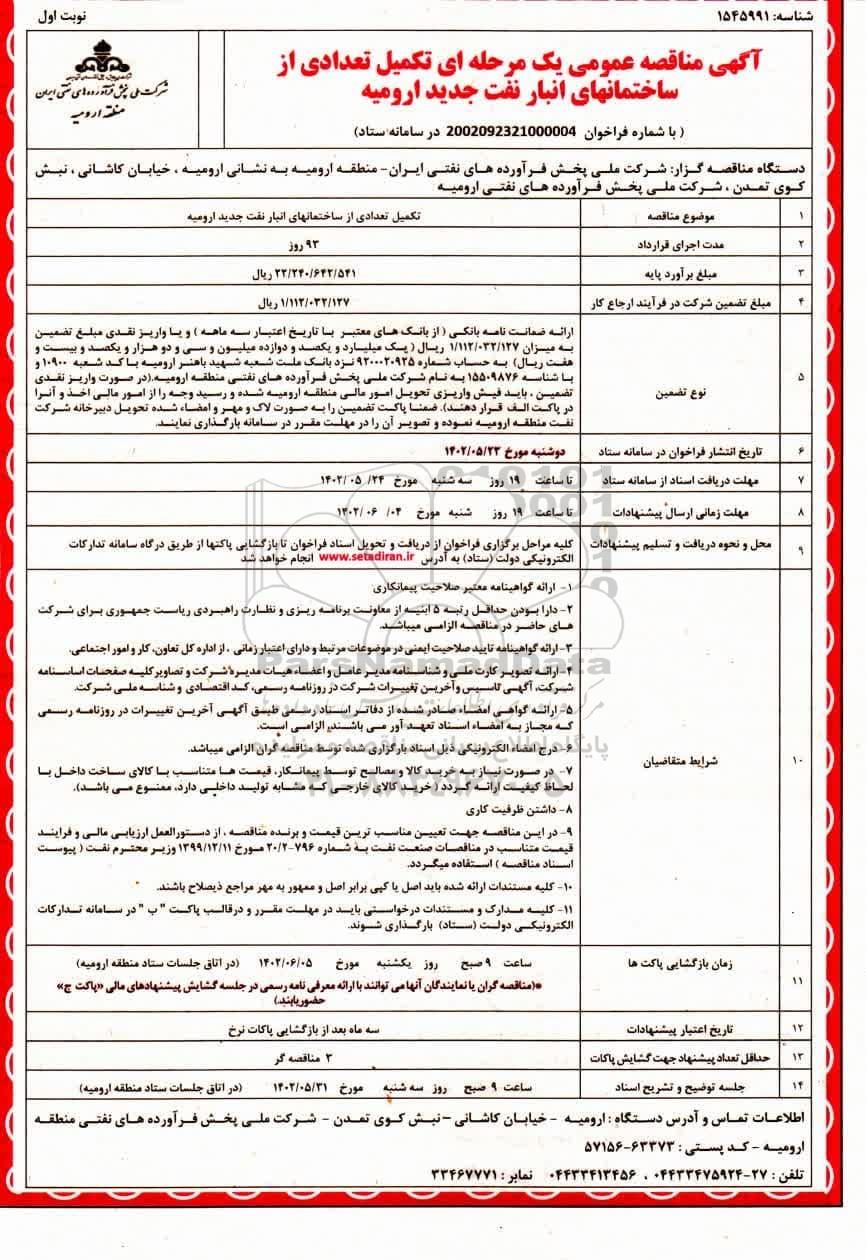 شناسه: ۱۵۴۵۹۹۱
نوبت اول
آگهی مناقصه عمومی یک مرحله ای تکمیل تعدادی از
ساختمانهای انبار نفت جدید ارومیه
( با شماره فراخوان 2002092321000004 در سامانه ستاد)
شرکت ملی پخش فرآورده های نفتی ایران
منطقه ارومیه
دستگاه مناقصه گزار: شرکت ملی پخش فرآورده های نفتی ایران- منطقه ارومیه به نشانی ارومیه ، خیابان کاشانی ، نبش
کوی تمدن ، شرکت ملی پخش فرآورده های نفتی ارومیه
۱ موضوع مناقصه تکمیل تعدادی از ساختمانهای انبار نفت جدید ارومیه
۲ مدت اجرای قرارداد ۹۳ روز
۳ مبلغ برآورد پایه ۲۲/۲۴۰/۶۴۲/۵۴۱ ریال
۴ مبلغ تضمین شرکت در فرآیند ارجاع کار ۱/۱۱۲/۰۳۲/۱۲۷ ریال
۵ نوع تضمین
ارائه ضمانت نامه بانکی ( از بانک های معتبر با تاریخ اعتبار سه ماهه ) و یا واریز نقدی مبلغ تضمین
به میزان ۱/۱۱۲/۰۳۲/۱۲۷ ریال ( یک میلیارد و یکصد و دوازده میلیون و سی و دو هزار و یکصد و بیست و
هفت ریال) به حساب شماره ۹۲۰۰۰۲۰۹۲۵ نزد بانک ملت شعبه شهید باهنر ارومیه با کد شعبه ۱۰۹۰۰ و
با شناسه ۱۵۵۰۹۸۷۶ به نام شرکت ملی پخش فرآورده های نفتی منطقه ارومیه.(در صورت واریز نقدی
تضمین ، باید فیش واریزی تحویل امور مالی منطقه ارومیه شده و رسید وجه را از امور مالی اخذ و آنرا
در پاکت الف قرار دهند). ضمنا پاکت تضمین را به صورت لاک و مهر و امضاء شده تحویل دبیرخانه شرکت
نفت منطقه ارومیه نموده و تصویر آن را در مهلت مقرر در سامانه بارگذاری نمایند.
۶ تاریخ انتشار فراخوان در سامانه ستاد دوشنبه مورخ ۱۴۰۲/۰۵/۲۳
۷ مهلت دریافت اسناد از سامانه ستاد تا ساعت ۱۹ روز سه شنبه مورخ ۲۴/ ۰۵ /۱۴۰۲
۸ مهلت زمانی ارسال پیشنهادات تا ساعت ۱۹ روز شنبه مورخ ۰۴/ ۰۶ /۱۴۰۲
۹ محل و نحوه دریافت و تسلیم پیشنهادات
کلیه مراحل برگزاری فراخوان از دریافت و تحویل اسناد فراخوان تا بازگشایی پاکتها از طریق درگاه سامانه تدارکات
الکترونیکی دولت (ستاد) به آدرس www.setadiran.ir انجام خواهد شد
۱۰ شرایط متقاضیان
۱- ارائه گواهینامه معتبر صلاحیت پیمانکاری
۲- دارا بودن حداقل رتبه ۵ ابنیه از معاونت برنامه ریزی و نظارت راهبردی ریاست جمهوری برای شرکت
های حاضر در مناقصه الزامی میباشد.
۳- ارائه گواهینامه تایید صلاحیت ایمنی در موضوعات مرتبط و دارای اعتبار زمانی ، از اداره کل تعاون، کار و امور اجتماعی.
۴- ارائه تصویر کارت ملی و شناسنامه مدیر عامل و اعضاء هیات مدیره شرکت و تصاویر کلیه صفحات اساسنامه
شرکت، آگهی تاسیس وآخرین تغییرات شرکت در روزنامه رسمی، کد اقتصادی و شناسه ملی شرکت.
۵- ارائه گواهی امضاء صادر شده از دفاتر اسناد رسمی طبق آگهی آخرین تغییرات در روزنامه رسمی
که مجاز به امضاء اسناد تعهد آور می باشند، الزامی است.
۶- درج امضاء الکترونیکی ذیل اسناد بارگزاری شده توسط مناقصه گران الزامی میباشد.
۷- در صورت نیاز به خرید کالا و مصالح توسط پیمانکار، قیمت ها متناسب با کالای ساخت داخل با
لحاظ کیفیت ارائه گردد ( خرید کالای خارجی که مشابه تولید داخلی دارد، ممنوع می باشد).
۸- داشتن ظرفیت کاری
۹- در این مناقصه جهت تعیین مناسب ترین قیمت و برنده مناقصه ، از دستورالعمل ارزیابی مالی و فرایند
قیمت متناسب در مناقصات صنعت نفت به شماره ۷۹۶-۲۰/۲ مورخ ۱۳۹۹/۱۲/۱۱ وزیر محترم نفت ( پیوست
اسناد مناقصه ) استفاده میگردد.
۱۰- کلیه مستندات ارائه شده باید اصل یا کپی برابر اصل و ممهور به مهر مراجع ذیصلاح باشند.
۱۱- کلیه مدارک و مستندات درخواستی باید در مهلت مقرر و درقالب پاکت " ب " در سامانه تدارکات
الکترونیکی دولت (ستاد) بارگذاری شوند.
۱۱ زمان بازگشایی پاکت ها ساعت ۹ صبح روز یکشنبه مورخ ۱۴۰۲/۰۶/۰۵ (در اتاق جلسات ستاد منطقه ارومیه)
*(مناقصه گران یا نمایندگان آنها می توانند با ارائه معرفی نامه رسمی در جلسه گشایش پیشنهادهای مالی «پاکت ج»
حضور یابند.)
۱۲ تاریخ اعتبار پیشنهادات سه ماه بعد از بازگشایی پاکات نرخ
۱۳ حداقل تعداد پیشنهاد جهت گشایش پاکات ۳ مناقصه گر
۱۴ جلسه توضیح و تشریح اسناد ساعت ۹ صبح روز سه شنبه مورخ ۱۴۰۲/۰۵/۳۱ (در اتاق جلسات ستاد منطقه ارومیه)
اطلاعات تماس و آدرس دستگاه : ارومیه - خیابان کاشانی –نبش کوی تمدن - شرکت ملی پخش فرآورده های نفتی منطقه
ارومیه - کد پستی : ۶۳۳۷۳-۵۷۱۵۶
تلفن : ۲۷-۰۴۴۳۳۴۷۵۹۲۴ ، ۰۴۴۳۳۴۱۳۴۵۶ نمابر : ۳۳۴۶۷۷۷۱
ParsNamadData